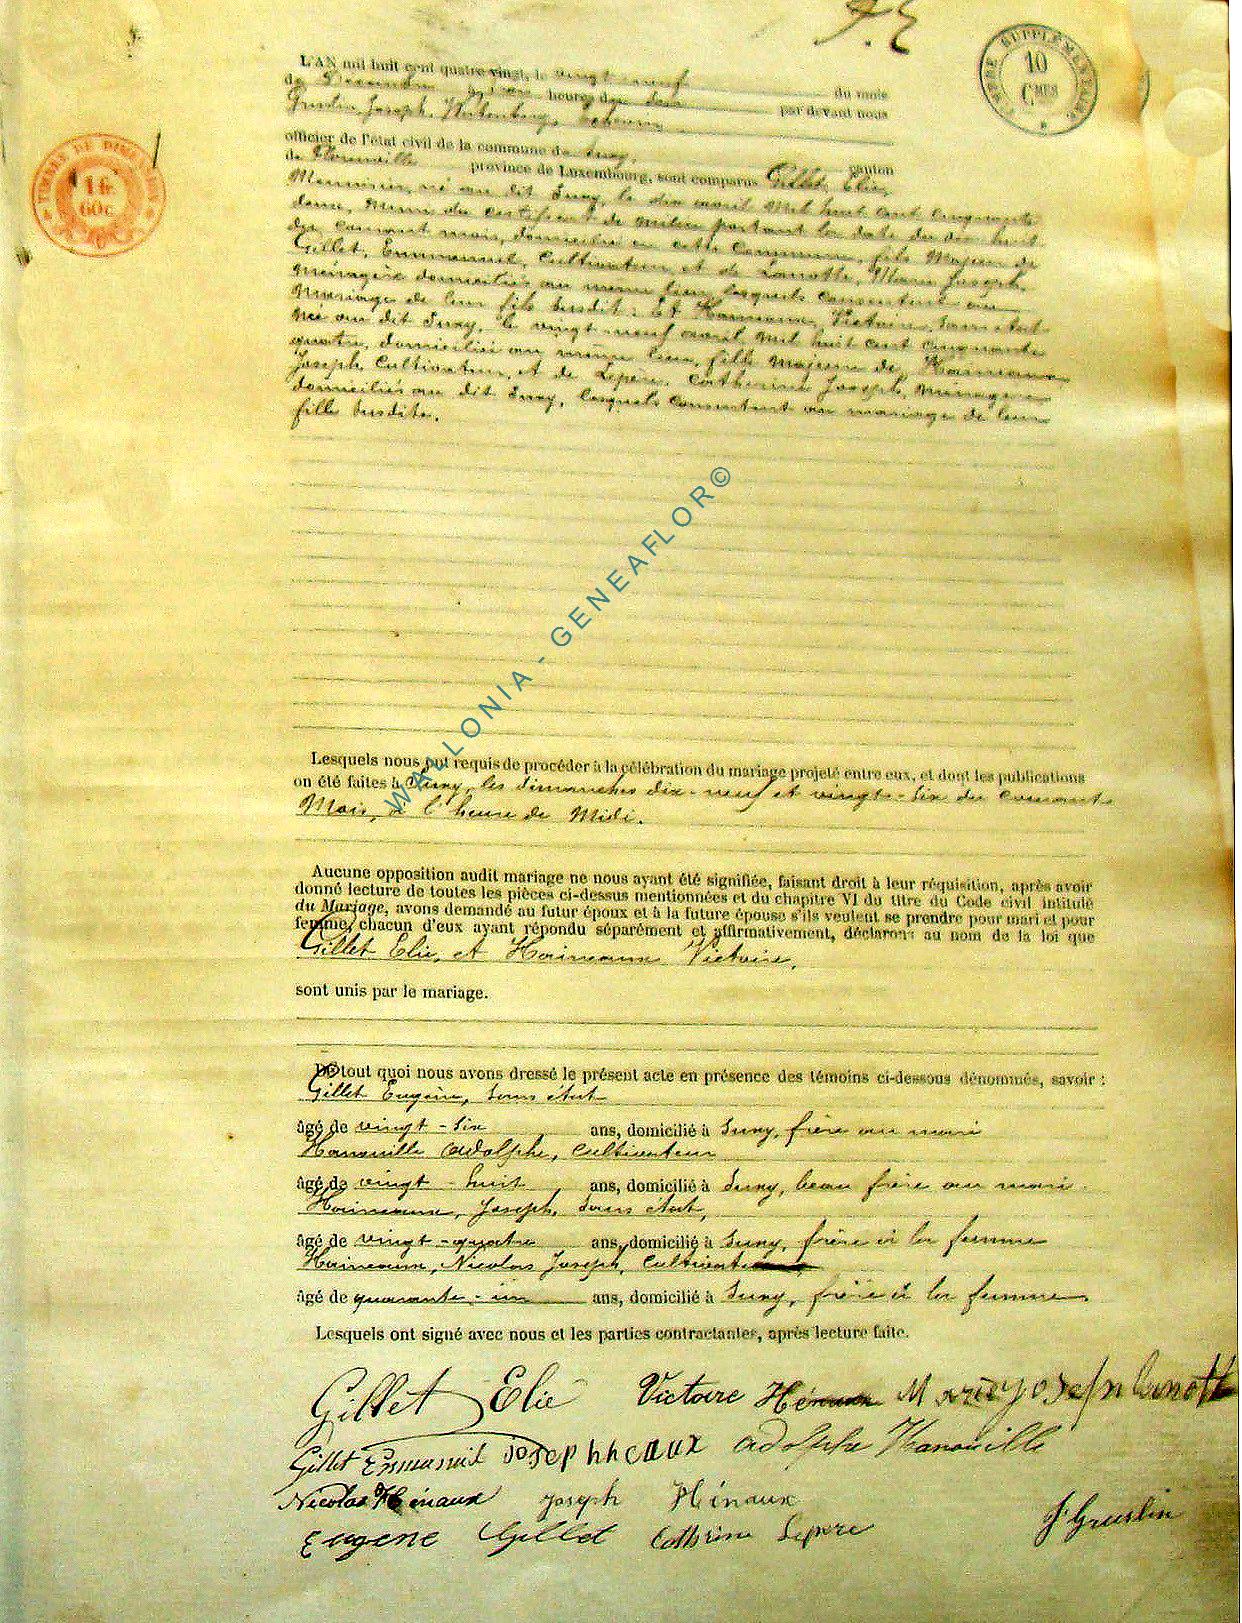 TIMBRE SUPPLÉMENTAIRE
10
CMES
TIMBRE DE DIMENSION
1 fr.
60 c.
L'AN mil huit cent quatre-vingt, le vingt neuf du mois
de Décembre heures du par devant nous
Gruslin, Joseph, Échevin
officier de l'état civil de la commune de Suxy, canton
de Florenville province de Luxembourg, sont comparus Gillet Elie,
Meunier, né au dit Suxy, le dix avril mil huit cent cinquante
deux, Muni du certificat de milice portant la date du dix huit
du courant mois, domicilié en cette commune, fils Majeur de
Gillet, Emmanuel, Cultivateur, et de Lanotte, Marie Joseph,
ménagère domiciliés au même lieu, lesquels consentent au
Mariage de leur fils susdit; Et Haineaux, Victoire, sans état
née au dit Suxy, le vingt neuf avril mil huit cent cinquante
quatre, domiciliée au même lieu, fille majeure de Haineaux
Joseph, Cultivateur, et de Lepère, Catherine Joseph, ménagère
domiciliés au dit Suxy, lesquels consentent au mariage de leur
fille susdite.
WALLONIA - GENEAFLOR©
Lesquels nous ont requis de procéder à la célébration du mariage projeté entre eux, et dont les publications
on été faites à Suxy, les dimanches dix-neuf et vingt-six du courant
Mois, à l'heure de Midi.
Aucune opposition audit mariage ne nous ayant été signifiée, faisant droit à leur réquisition, après avoir
donné lecture de toutes les pièces ci-dessus mentionnées et du chapitre VI du titre du Code civil intitulé
du Mariage, avons demandé au futur époux et à la future épouse s'ils veulent se prendre pour mari et pour
femme, chacun d'eux ayant répondu séparément et affirmativement, déclarons au nom de la loi que
Gillet Elie, et Haineaux Victoire,
sont unis par le mariage.
De tout quoi nous avons dressé le présent acte en présence des témoins ci-dessous dénommés, savoir :
Gillet Eugène, sans état
âgé de vingt-six ans, domicilié à Suxy, frère au mari
Hanouille Adolphe, Cultivateur
âgé de vingt-huit ans, domicilié à Suxy, beau frère au mari.
Haineaux, Joseph, sans état,
âgé de vingt-quatre ans, domicilié à Suxy, frère à la femme
Haineaux, Nicolas Joseph, Cultivateur
âgé de quarante-un ans, domicilié à Suxy, frère à la femme.
Lesquels ont signé avec nous et les parties contractantes, après lecture faite.
Gillet Elie Victoire Hénaux Marie Joseph Lanotte
Gillet Emmanuel Joseph heaux Adolphe Hanouille
Nicolas Hénaux Joseph Hénaux
Eugene Gillet Cathrine Lepere J. Gruslin